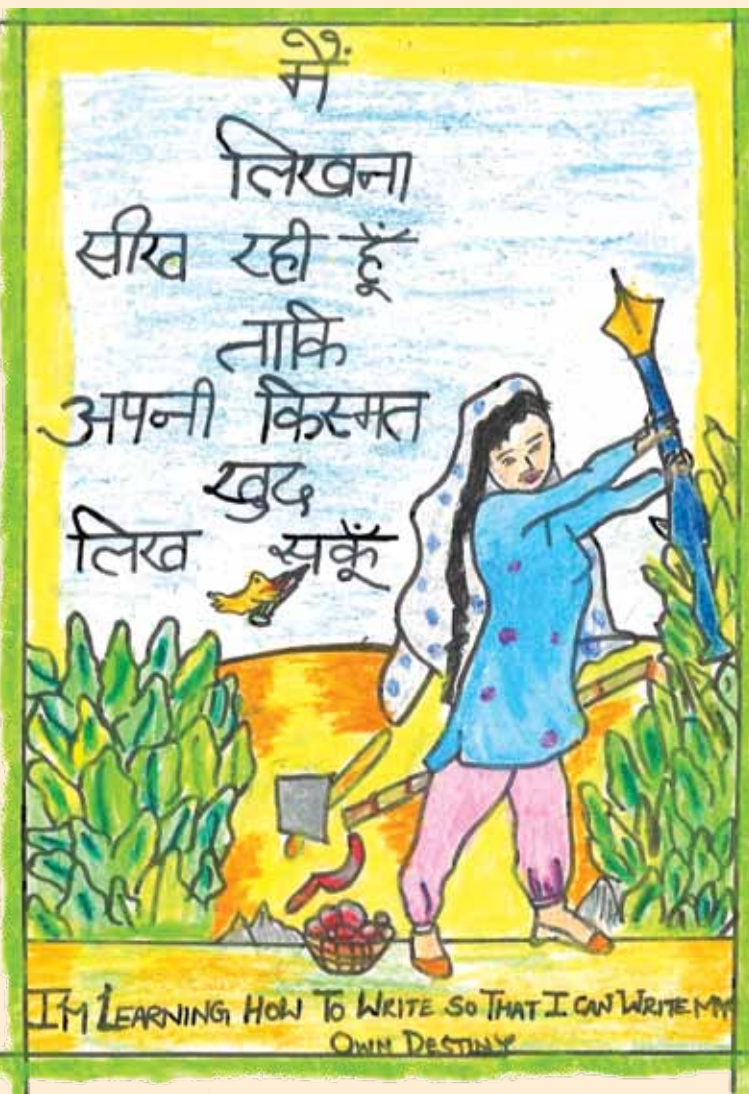 मैं
लिखना
सीख रही हूँ
ताकि
अपनी किस्मत
खुद
लिख सकूँ
I'M LEARNING HOW TO WRITE SO THAT I CAN WRITE MY
OWN DESTINY